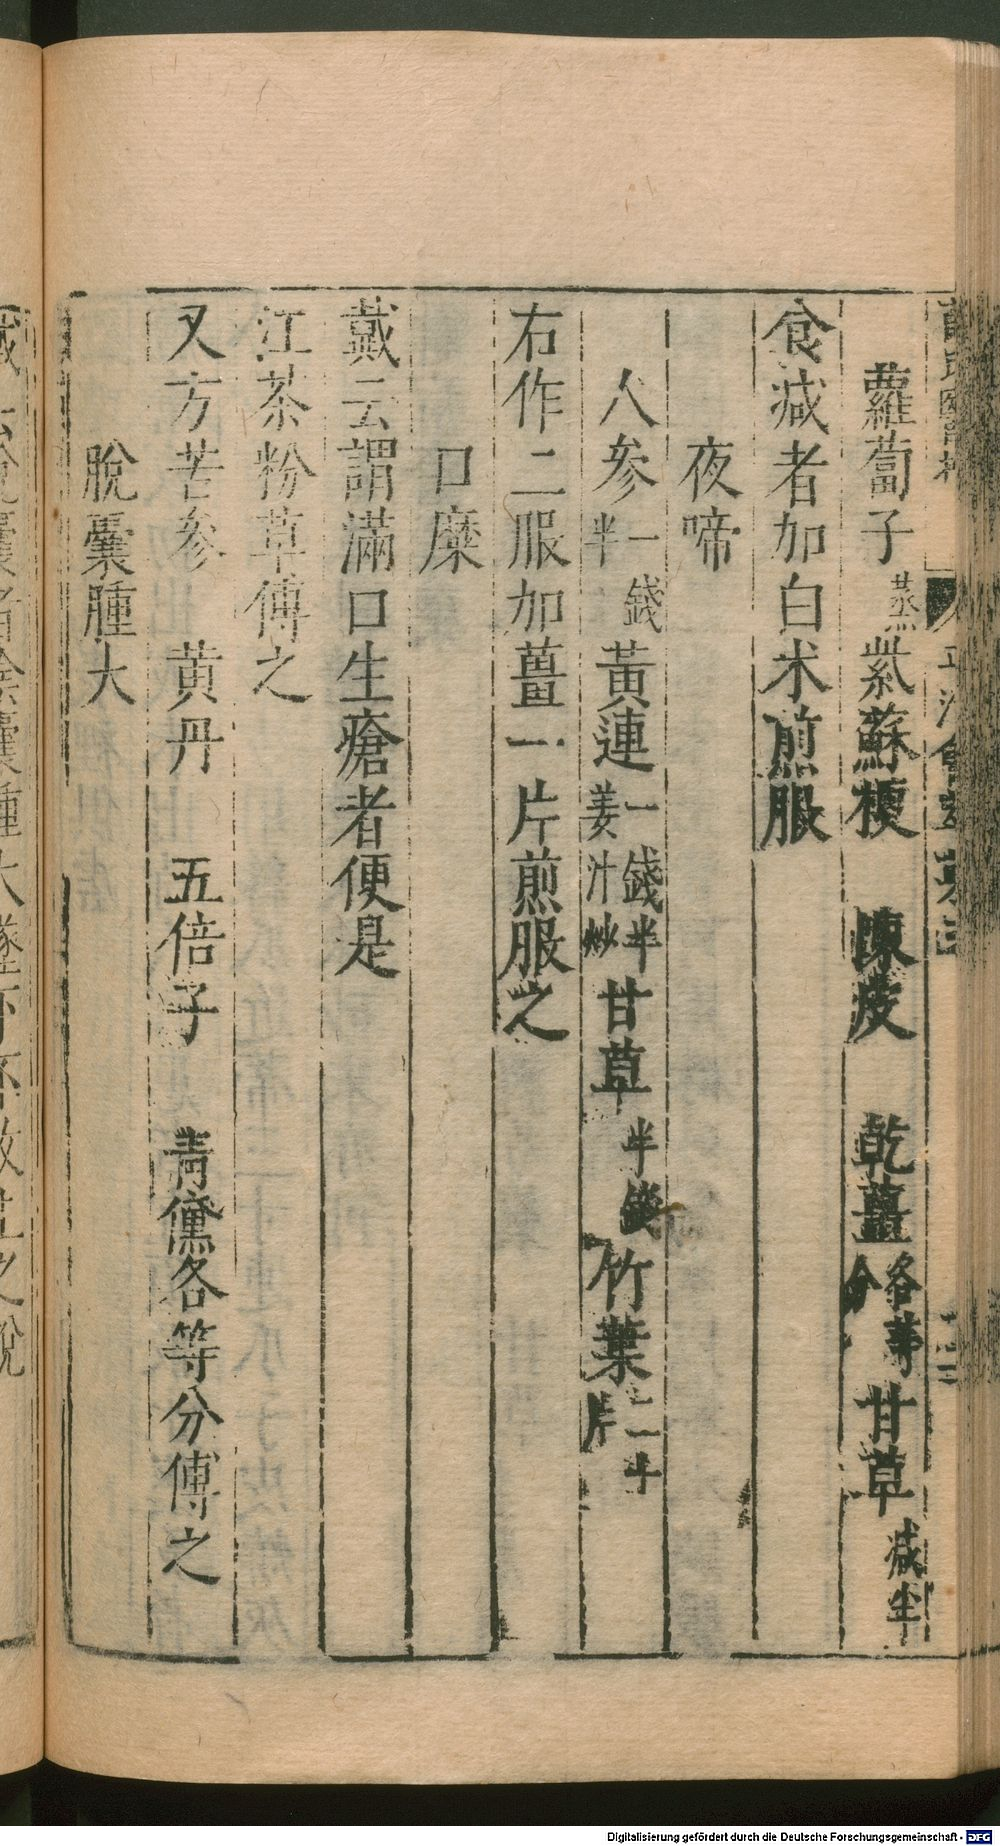 蘿蔔子蒸 紫蘇梗 陳皮 乾薑各等分 甘草減半
食减者加白术煎服
夜啼
人參一錢半 黃連一錢半姜汁炒 甘草半錢 竹葉二十片
右作二服加薑一片煎服之
口糜
戴云謂滿口生瘡者便是
江茶粉草傅之
又方苦參 黄丹 五倍子 青黛各等分傅之
脫囊腫大
Digitalisierung gefördert durch die Deutsche Forschungsgemeinschaft - DFG